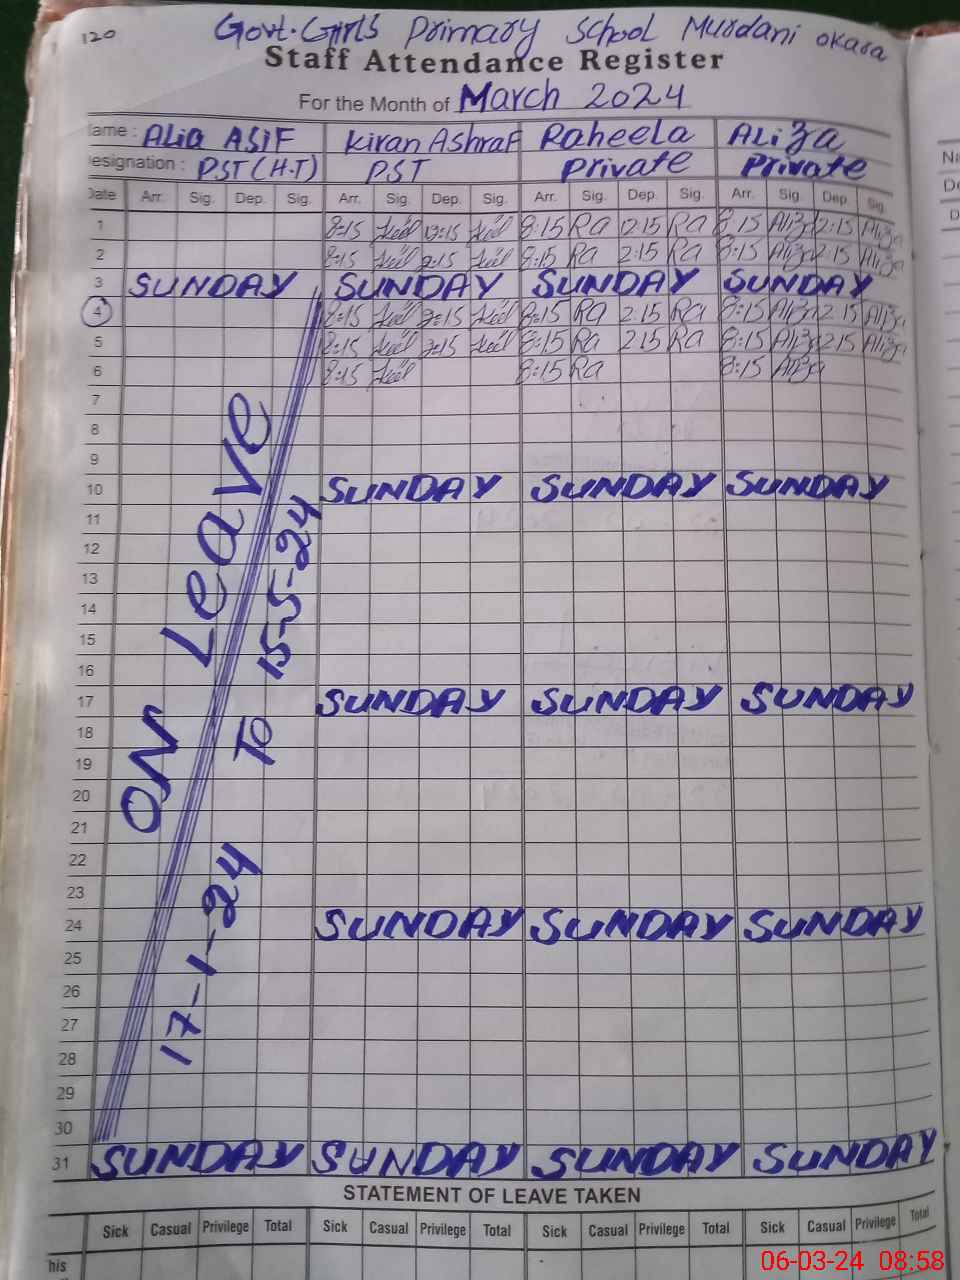 120
Govt. Girls Primary School Murdani okara
Staff Attendance Register
For the Month of March 2024
ame : Alia ASIF Kiran Ashraf Raheela Aliza
esignation : PST (H.T) PST Private Private
Date Arr. Sig. Dep. Sig. Arr. Sig. Dep. Sig. Arr. Sig. Dep. Sig. Arr. Sig. Dep. Sig.
1 8:15 2:15 8:15 Ra 2:15 Ra 8:15 Aliza 2:15 Aliza
2 8:15 2:15 8:15 Ra 2:15 Ra 8:15 Aliza 2:15 Aliza
3 SUNDAY SUNDAY SUNDAY SUNDAY
4 8:15 2:15 8:15 Ra 2:15 Ra 8:15 Aliza 2:15 Aliza
5 8:15 2:15 8:15 Ra 2:15 Ra 8:15 Aliza 2:15 Aliza
6 8:15 8:15 Ra 8:15 Aliza
7
8
9
10 SUNDAY SUNDAY SUNDAY
11
12
13
14
15
16
17 SUNDAY SUNDAY SUNDAY
18
19
20
21
22
23
24 SUNDAY SUNDAY SUNDAY
25
26
27
28
29
30
31 SUNDAY SUNDAY SUNDAY SUNDAY
ON Leave
17-1-24 To 15-5-24
STATEMENT OF LEAVE TAKEN
Sick Casual Privilege Total Sick Casual Privilege Total Sick Casual Privilege Total Sick Casual Privilege Total
his
06-03-24 08:58